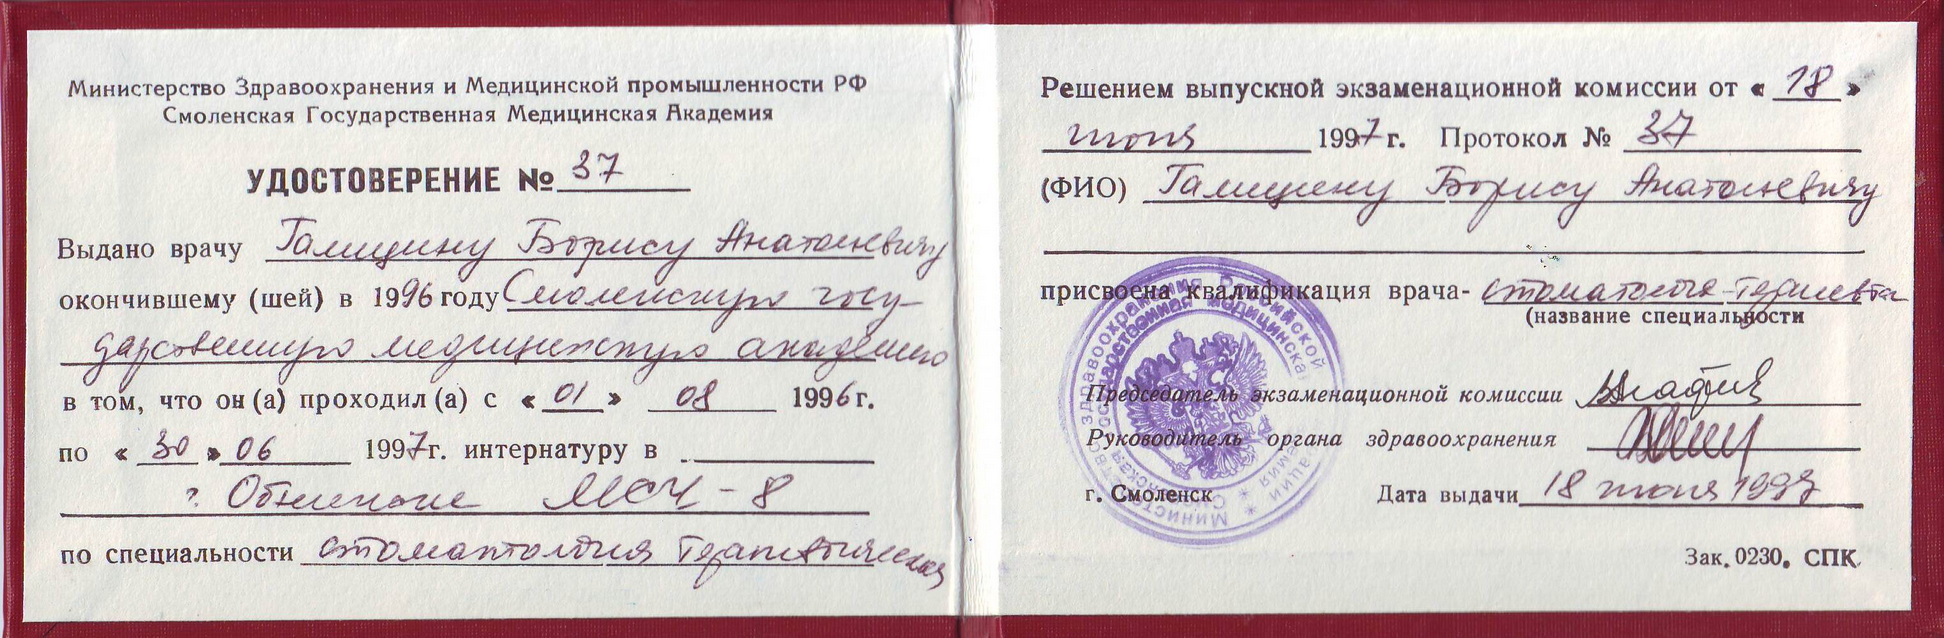 Министерство Здравоохранения и Медицинской промышленности РФ
Смоленская Государственная Медицинская Академия
УДОСТОВЕРЕНИЕ № 37
Выдано врачу Галицину Борису Анатольевичу
окончившему (шей) в 1996 году Смоленскую госу-
дарственную медицинскую академию
в том, что он (а) проходил (а) с « 01 » 08 1996 г.
по « 30 » 06 1997 г. интернатуру в
г. Обнинске МСЧ - 8
по специальности стоматология терапевтическая
Решением выпускной экзаменационной комиссии от « 18 »
июня 1997 г. Протокол № 37
(ФИО) Галицину Борису Анатольевичу
присвоена квалификация врача- стоматолога-терапевта
(название специальности
Председатель экзаменационной комиссии
Руководитель органа здравоохранения
г. Смоленск Дата выдачи 18 июня 1997
Зак. 0230. СПК